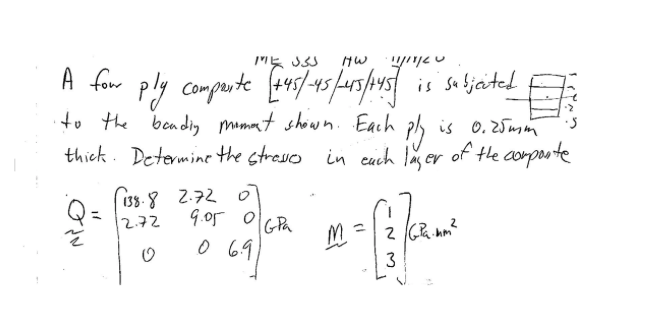 ME 533 HW 11/11/20
A four ply composite [+45/-45/-45/+45] is subjected
to the bending moment shown. Each ply is 0.25mm
thick. Determine the stresses in each layer of the composite
Q = [138.8 2.72 0
2.72 9.05 0
0 0 6.9] GPa
M = [1
2
3] GPa·mm²